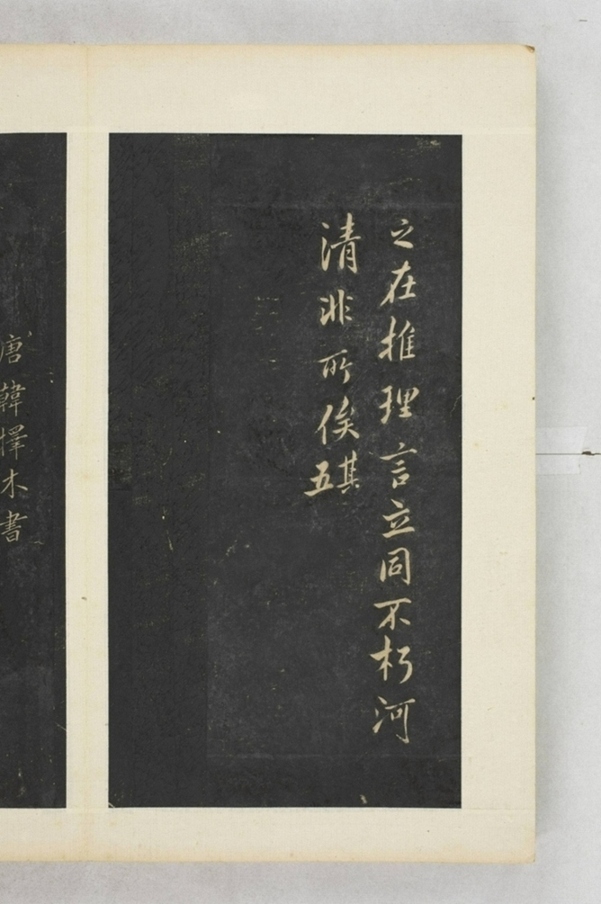 之在推理言立同不朽河
清非所俟其五
唐韓擇木書